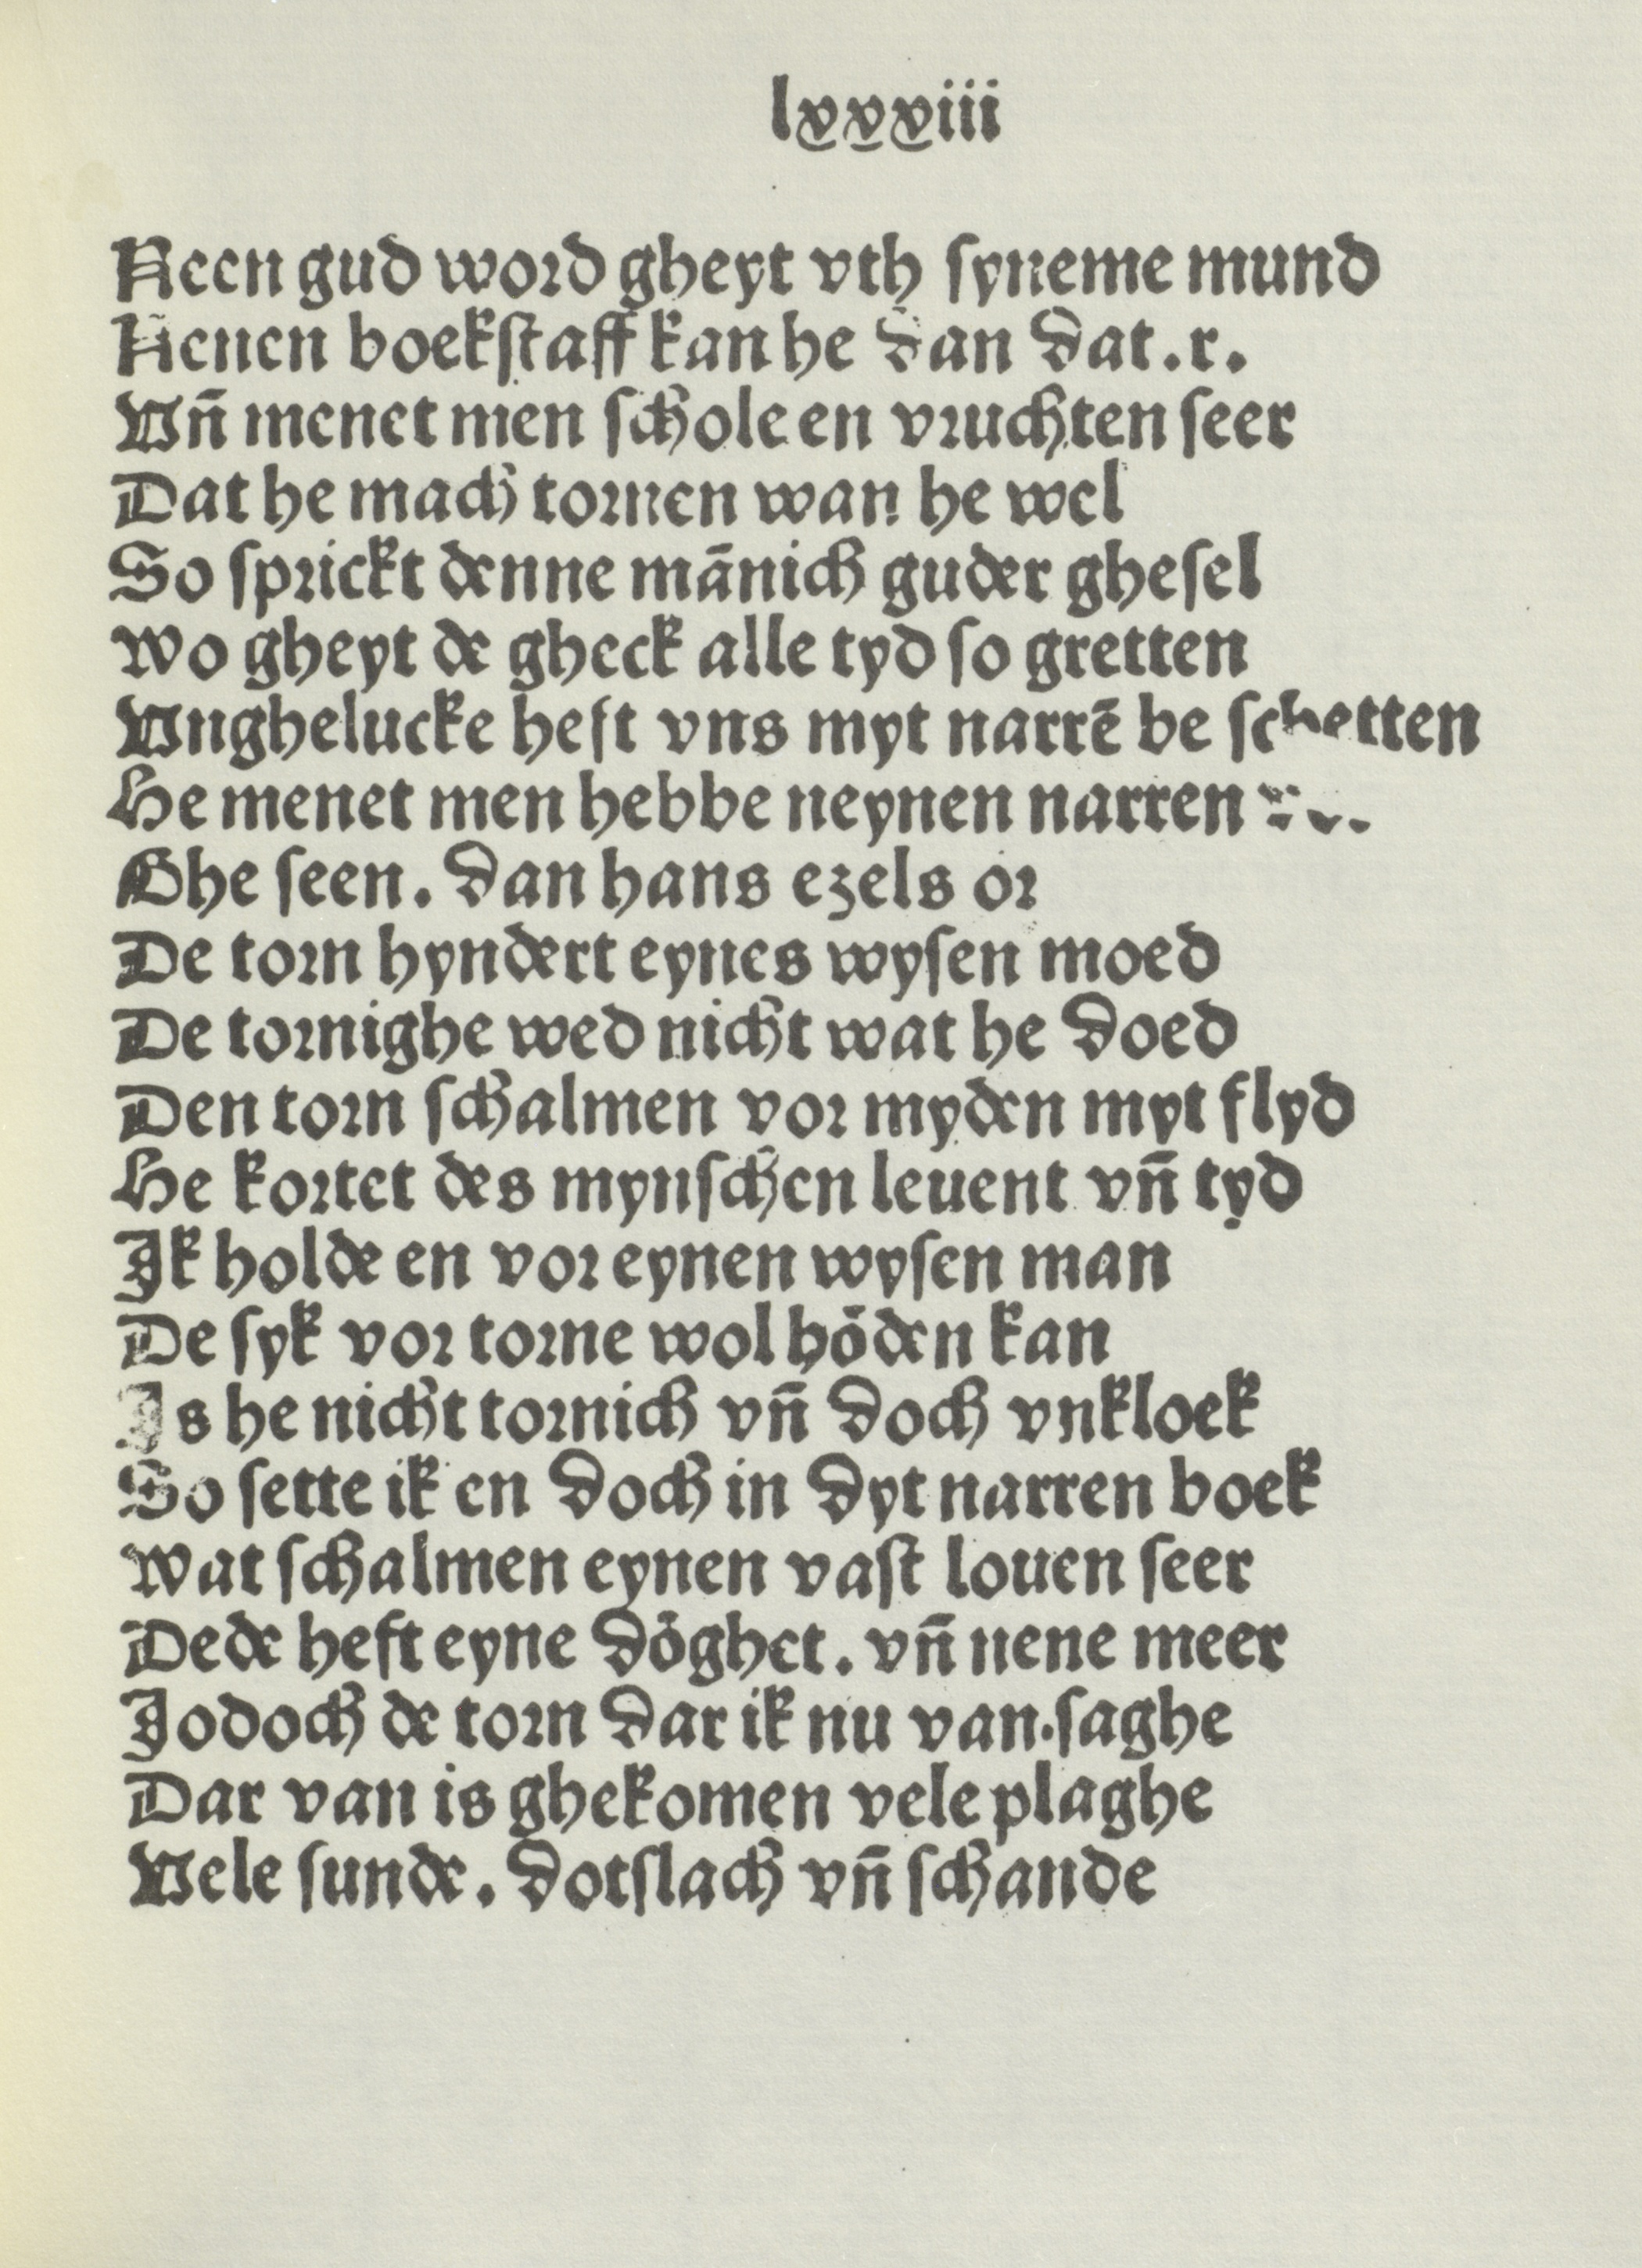 lxxxiii
Neen gud word gheyt vth syneme mund
Nenen boekstaff kan he dan dat.r.
Vn̄ menet men schole en vruchten seer
Dat he mach tornen wan he wel
So sprickt denne mānich guder ghesel
Wo gheyt de gheck alle tyd so gretten
Vnghelucke heft vns myt narrē be schetten
He menet men hebbe neynen narren
Ghe seen. dan hans ezels or
De torn hyndert eynes wysen moed
De tornighe wed nicht wat he doed
Den torn schalmen vor myden myt flyd
He kortet des mynschen leuent vn̄ tyd
Ik holde en vor eynen wysen man
De syk vor torne wol höden kan
Is he nicht tornich vn̄ doch vnkloek
So sette ik en doch in dyt narren boek
Wat schalmen eynen vast louen seer
Dede heft eyne döghet. vn̄ nene meer
Jodoch de torn dar ik nu van.saghe
Dar van is ghekomen vele plaghe
Vele sunde. dotslach vn̄ schande